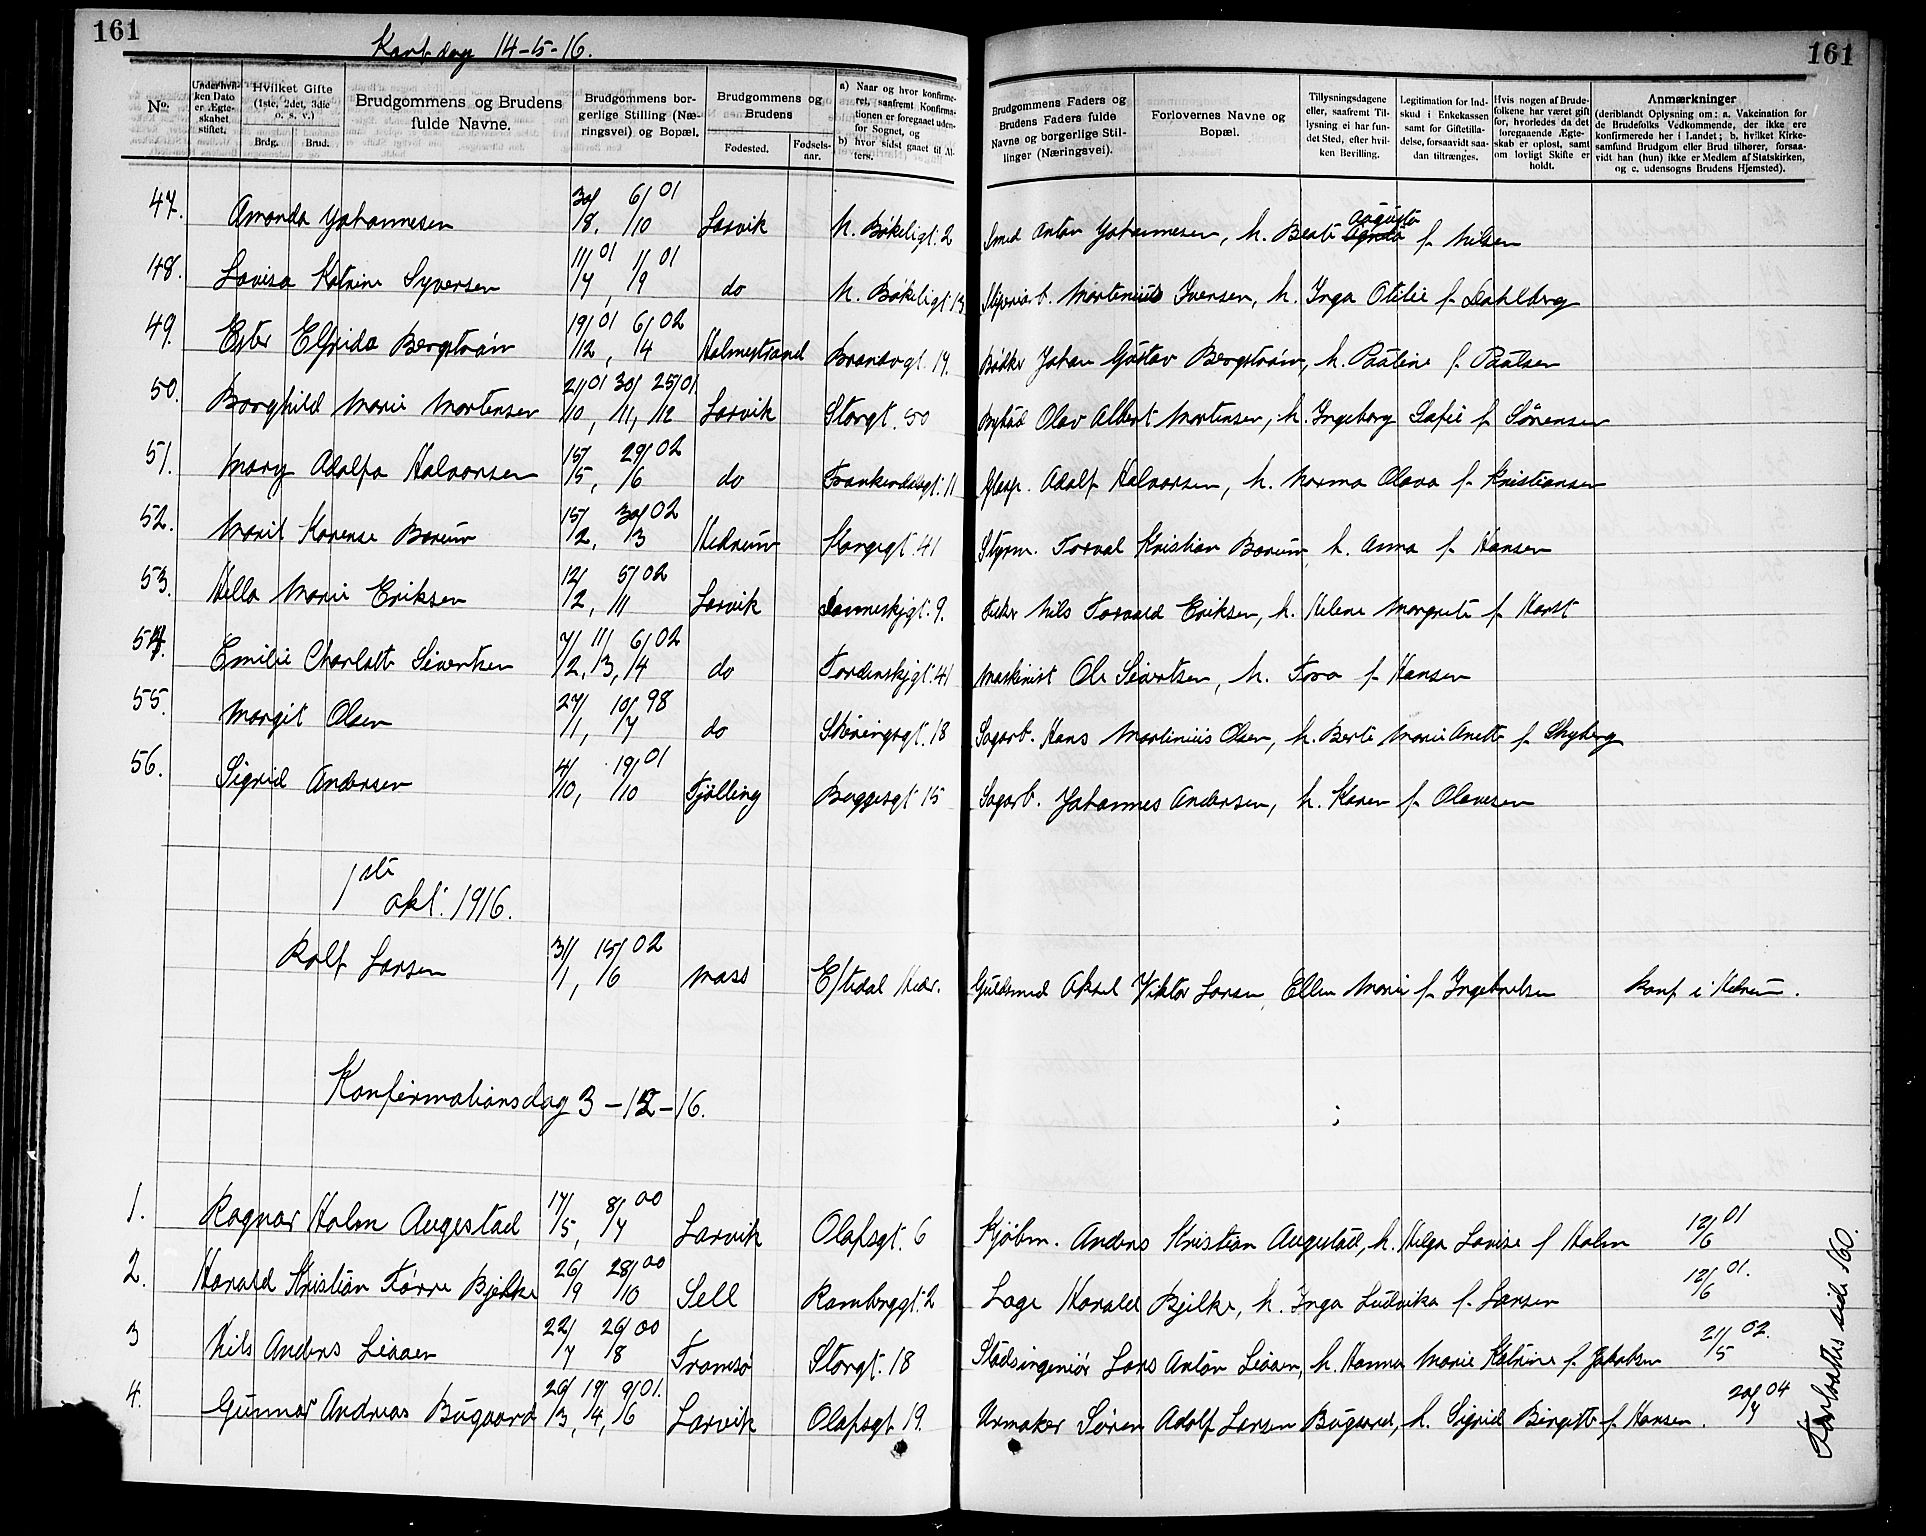 161
Konf. dag 14-5-16.
161
No.
Under hvilken Dato er Ægteskabet stiftet.
Hvilket Gifte (1ste, 2det, 3die o. s. v.)
Brdg.
Brud.
Brudgommens og Brudens fulde Navne.
Brudgommens borgerlige Stilling (Næringsvei) og Bopæl.
Brudgommens og Brudens
Fødested.
Fødselsaar.
a) Naar og hvor konfirmeret, saafremt Konfirmationen er foregaaet udenfor Sognet, og
b) hvor sidst gaaet til Alters.
Brudgommens Faders og Brudens Faders fulde Navne og borgerlige Stillinger (Næringsvei).
Forlovernes Navne og Bopæl.
Tillysningsdagene eller, saafremt Tillysning ei har fundet Sted, efter hvilken Bevilling.
Legitimation for Indskud i Enkekassen samt for Giftetilladelse, forsaavidt saadan tiltrænges.
Hvis nogen af Brudefolkene har været gift før, hvorledes da det foregaaende Ægteskab er opløst, samt om lovligt Skifte er holdt.
Anmærkninger
(deriblandt Oplysning om: a. Vakcination for de Brudefolks Vedkommende, der ikke ere konfirmerede her i Landet; b. hvilket Kirkesamfund Brudgom eller Brud tilhører, forsaavidt han (hun) ikke er Medlem af Statskirken, og c. udensogns Brudens Hjemsted).
47. Amanda Johannesen 30/8, 6/10 01 Larvik N. Bøkeligt. 2 Smed Anton Johannesen, h. Beate Augusta f. Nilsen
48. Lovisa Katrine Syversen 11/7 01, 1/9 01 do N. Bøkeligt. 13 Sliperiarb. Martinius Iversen, h. Inga Otilie f. Dahlberg
49. Ester Elfrida Bergstrøm 19/12 01, 6/4 02 Holmestrand Brandvgt. 14. Bøkker Johan Gustav Bergstrøm, h. Pauline f. Paulsen
50. Borghild Marie Mortensen 21/10 01, 30/11, 25/12 01 Larvik Storgt. 50 Bybud Olav Albert Mortensen, h. Ingeborg Sofie f. Sørensen
51. Mary Adolfa Halvorsen 15/5, 29/6 02 do Trankendalsgt. 11 Glasp. Adolf Halvorsen, h. Norma Olava f. Kristiansen
52. Marit Karense Borum 15/2, 30/3 02 Hedrum Kongegt. 41 Styrm. Torval Kristian Borum, h. Anna f. Hansen
53. Hella Marie Eriksen 12/2, 5/11 02 Larvik Danneskjgt. 9. Fisker Nils Torvald Eriksen, h. Helene Margrete f. Horst
54. Emilie Charlotte Sivertsen 7/2, 11/3, 6/4 02 do Tordenskjgt. 41 Maskinist Ole Sivertsen, h. Tora f. Hansen
55. Margit Olsen 27/1, 10/7 98 do Skiringsgt. 18 Sagarb. Hans Martinius Olsen, h. Berte Marie Anette f. Skyberg
56. Sigrid Andersen 4/10, 19/10 01 Tjølling Buggesgt 15 Sagarb. Johannes Andersen, h. Karen f. Olavesen
1ste okt. 1916.
Rolf Larsen 31/1, 15/6 02 Moss E/tedal Hedr. Guldsmed Aksel Viktor Larsen, Ellen Marie f. Ingebretsen Konf i Hedrum.
Konfirmationsdag 3-12-16.
1. Ragnar Holm Augestad 17/5, 8/7 00 Larvik Olafsgt. 6 Kjøbm. Anders Kristian Augestad, h. Helga Lovise f Holm 12/6 01
2. Harald Kristian Tørre Bjelke 26/9, 28/10 00 Sell Rambergsgt. 2 Læge Harald Bjelke, h. Inga Ludvika f. Larsen 12/6 01.
3 Nils Anders Leiaaen 22/7, 26/8 00 Tromsø Storgt. 18 Stadsingeniør Lars Anton Leiaaen, h. Hanna Marie Katrine f. Jakobsen 21/5 02.
4. Gunnar Andreas Bugaard 26/3, 19/4, 9/6 01. Larvik Olafsgt 19. Urmaker Søren Adolf Larsen Bugaard, h. Sigrid Birgitte f. Hansen. 20/7 04
Fortsættes side 160.